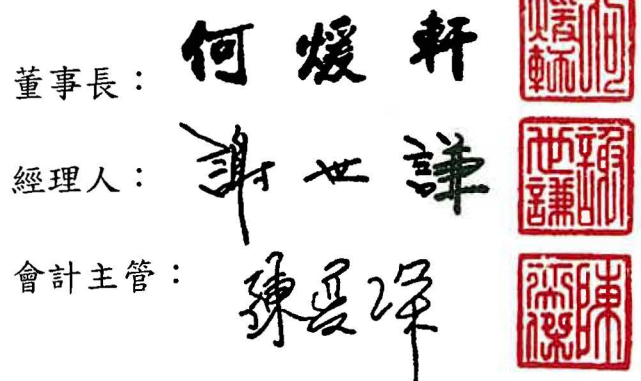 董事長： 何煖軒 何煖軒
經理人： 謝世謙 謝世謙
會計主管： 陳 陳